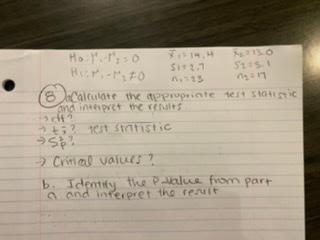 H0: μ1-μ2 = 0   x̄1 = 14.4   x̄2 = 13.0
H1: μ1-μ2 ≠ 0   S1 = 2.7   S2 = 3.1
n1 = 23   n2 = 17
8 a. Calculate the appropriate test statistic
and interpret the results
→ df?
→ test statistic
→ Sp²?
→ Critical values?
b. Identify the P-value from part
a and interpret the result